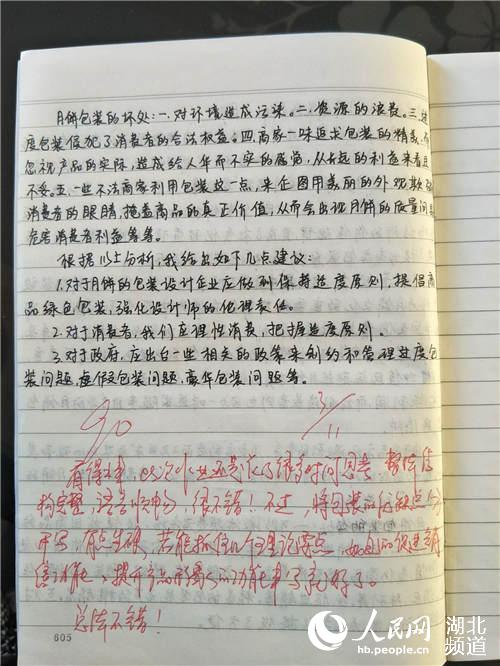 月饼包装的坏处:一.对环境造成污染。二.资源的浪费。三.过
度包装侵犯了消费者的合法权益。四.商家一味追求包装的精美,而
忽视产品的实际,造成给人华而不实的感觉,从长远的利益来看是
不妥。五.一些不法商家利用包装这一点,来企图用美丽的外观欺骗
消费者的眼睛,掩盖商品的真正价值,从而会出现月饼的质量问题
危害消费者利益等等。
根据以上分析,我给出如下几点建议:
1.对于月饼的包装设计企业应做到保持适度原则,提倡商
品绿色包装,强化设计师的伦理责任。
2.对于消费者,我们应理性消费,把握适度原则。
3.对于政府,应出台一些相关的政策来制约和管理过度包
装问题,虚假包装问题,豪华包装问题等。
90
3/11
看得出来,此次作业还是花了很多时间思考,整体结
构完整,语言顺畅,很不错!不过,将包装的优缺点
有点生硬,若能抓住几个理论要点,如包装的促进
功能,提升产品形象的功能来写就好了。
总体不错!
605
人民网 湖北
hb.people.cn